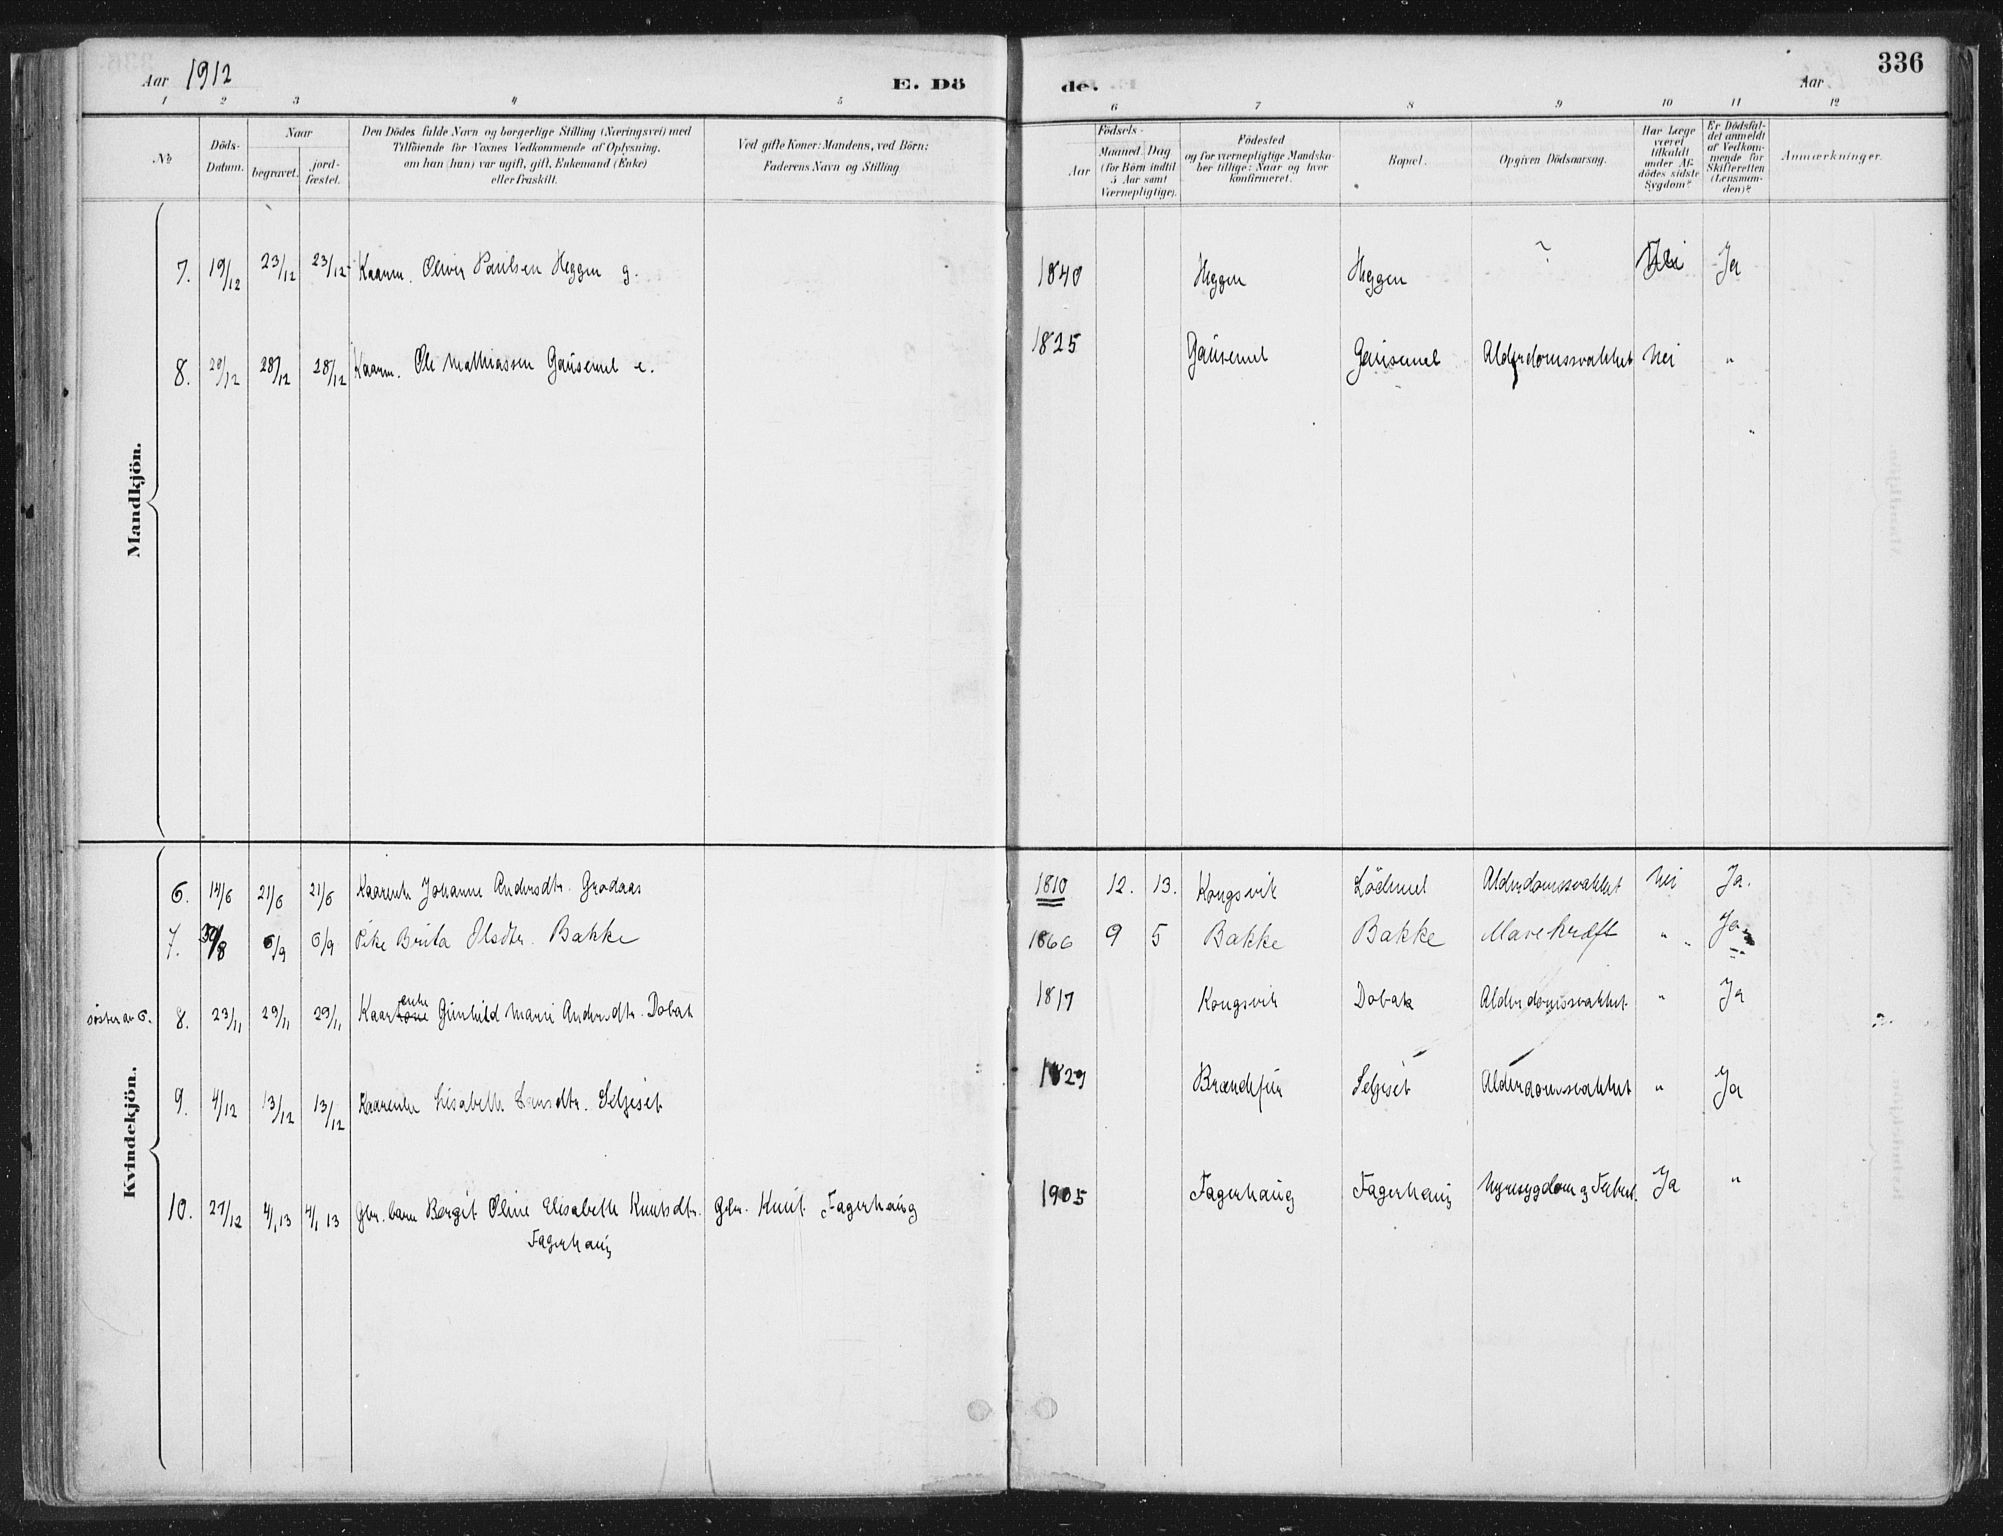 Aar 1912 E. Dö de. Aar 336
1 2 3 4 5 6 7 8 9 10 11 12
№
Döds-
Datum.
Naar
begravet.
jord-
fæstet.
Den Dödes fulde Navn og borgerlige Stilling (Næringsvei) med
Tilföiende for Voxnes Vedkommende af Oplysning,
om han (hun) var ugift, gift, Enkemand (Enke)
eller fraskilt.
Ved gifte Koner: Mandens, ved Börn:
Faderens Navn og Stilling
Födsels-
Aar
Maaned. Dag
(for Børn indtil
5 Aar samt
Værnepligtige).
Födested
og for værnepligtige Mandska-
ber tillige: Naar og hvor
konfirmeret.
Bopæl.
Opgiven Dödsaarsag.
Har Læge
været
tilkaldt
under Af-
dödes sidste
Sygdom?
Er Dödsfal-
det anmeldt
af Vedkom-
mende for
Skifteretten
(Lensman-
den)?
Anmærkninger.
Mandkjön.
7. 19/12 23/12 23/12 Kaarm. Oliver Paulsen Heggen g. 1840 Heggen Heggen ? Nei Ja
8. 20/12 28/12 28/12 Kaarm. Ole Mathiassen Gausemel e. 1825 Gausemel Gausemel Alderdomssvakket Nei "
Kvindekjön.
6. 14/6 21/6 21/6 Kaarenke Johanne Andersdtr. Grodaas 1810 12. 13. Kongsvik Lödemel Alderdomssvakket Nei Ja.
7. 30/8 6/9 6/9 Pike Brita Olsdtr. Bakke 1866 9 5 Bakke Bakke Mavekræft " " Ja
enke
søster av 6. 8. 23/11 29/11 29/11 Kaarkone Gunhild Marie Andersdtr. Dobak 1817 Kongsvik Dobak Alderdomssvakket " Ja
9. 4/12 13/12 13/12 Kaarenke Elisabeth Larsdtr. Seljeset 1829 Seljeset Alderdomssvakket " Ja
10. 27/12 4/1 13 4/1 13 Gbr. barn Bergit Oline Elisabeth Knutsdtr. Gbr. Knut Fagerhaug 1905 Fagerhaug Fagerhaug Nyresygdom og Ja "
Fagerhaug